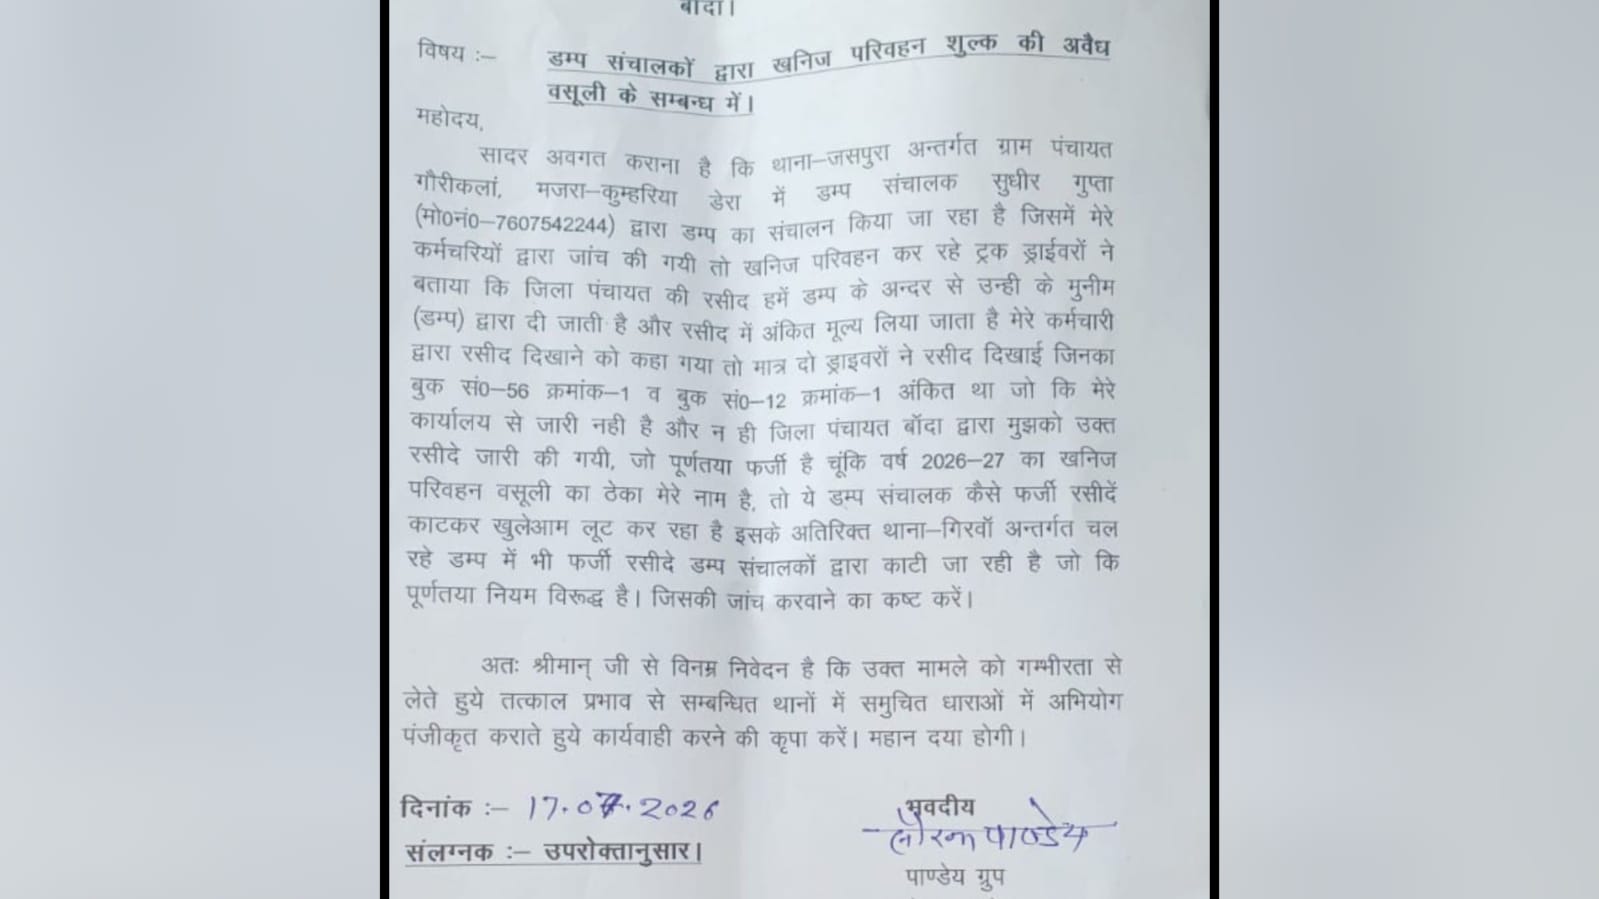 बांदा।
विषय :– डम्प संचालकों द्वारा खनिज परिवहन शुल्क की अवैध
वसूली के सम्बन्ध में।
महोदय,
सादर अवगत कराना है कि थाना–जसपुरा अन्तर्गत ग्राम पंचायत
गौरीकलां, मजरा–कुम्हरिया डेरा में डम्प संचालक सुधीर गुप्ता
(मो0नं0–7607542244) द्वारा डम्प का संचालन किया जा रहा है जिसमें मेरे
कर्मचरियों द्वारा जांच की गयी तो खनिज परिवहन कर रहे ट्रक ड्राईवरों ने
बताया कि जिला पंचायत की रसीद हमें डम्प के अन्दर से उन्ही के मुनीम
(डम्प) द्वारा दी जाती है और रसीद में अंकित मूल्य लिया जाता है मेरे कर्मचारी
द्वारा रसीद दिखाने को कहा गया तो मात्र दो ड्राइवरों ने रसीद दिखाई जिनका
बुक सं0–56 क्रमांक–1 व बुक सं0–12 क्रमांक–1 अंकित था जो कि मेरे
कार्यालय से जारी नही है और न ही जिला पंचायत बॉदा द्वारा मुझको उक्त
रसीदे जारी की गयी, जो पूर्णतया फर्जी है चूंकि वर्ष 2026–27 का खनिज
परिवहन वसूली का ठेका मेरे नाम है, तो ये डम्प संचालक कैसे फर्जी रसीदें
काटकर खुलेआम लूट कर रहा है इसके अतिरिक्त थाना–गिरवॉ अन्तर्गत चल
रहे डम्प में भी फर्जी रसीदे डम्प संचालकों द्वारा काटी जा रही है जो कि
पूर्णतया नियम विरूद्ध है। जिसकी जांच करवाने का कष्ट करें।
अतः श्रीमान् जी से विनम्र निवेदन है कि उक्त मामले को गम्भीरता से
लेते हुये तत्काल प्रभाव से सम्बन्धित थानों में समुचित धाराओं में अभियोग
पंजीकृत कराते हुये कार्यवाही करने की कृपा करें। महान दया होगी।
दिनांक :– 17.07.2026 भवदीय
पाण्डेय
संलग्नक :– उपरोक्तानुसार।
पाण्डेय ग्रुप